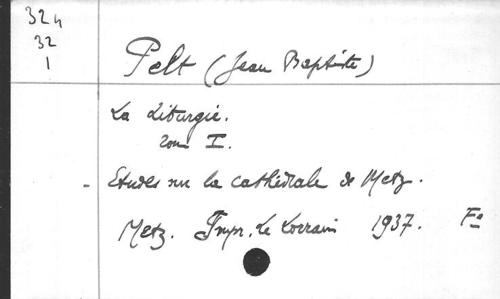 324
32
1
Pelt (Jean Baptiste)
La Liturgie.
Tom I.
- Etudes sur la cathédrale de Metz.
Metz. Impr. Le Lorrain 1937. Fo